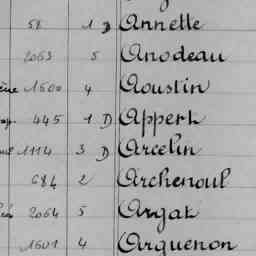 58 1 D Annette
2063 5 Anodeau
1500 4 Aoustin
445 1 D Appert
1114 3 D Arcelin
684 2 Archenoul
2064 5 Argat
1601 4 Arquenon